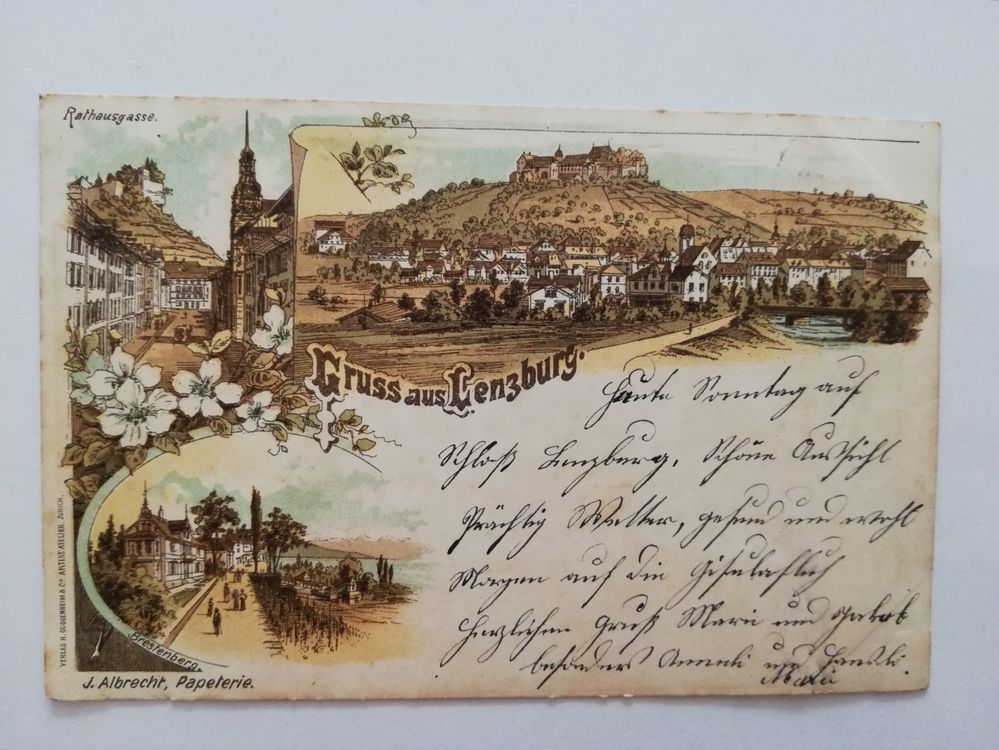 Rathausgasse.
Gruss aus Lenzburg.
Heute Sonntag auf
Schloß Lenzburg. Schöne Aussicht
Prächtig Wetter, gesund und wohl
Morgen auf die Gisulafluh
Herzlichen Gruß Marie und Jakob
besonders Anneli und Hansli
Marie
Brestenberg.
VERLAG H. GUGGENHEIM & Cº ARTIST. ATELIER, ZÜRICH.
J. Albrecht, Papeterie.